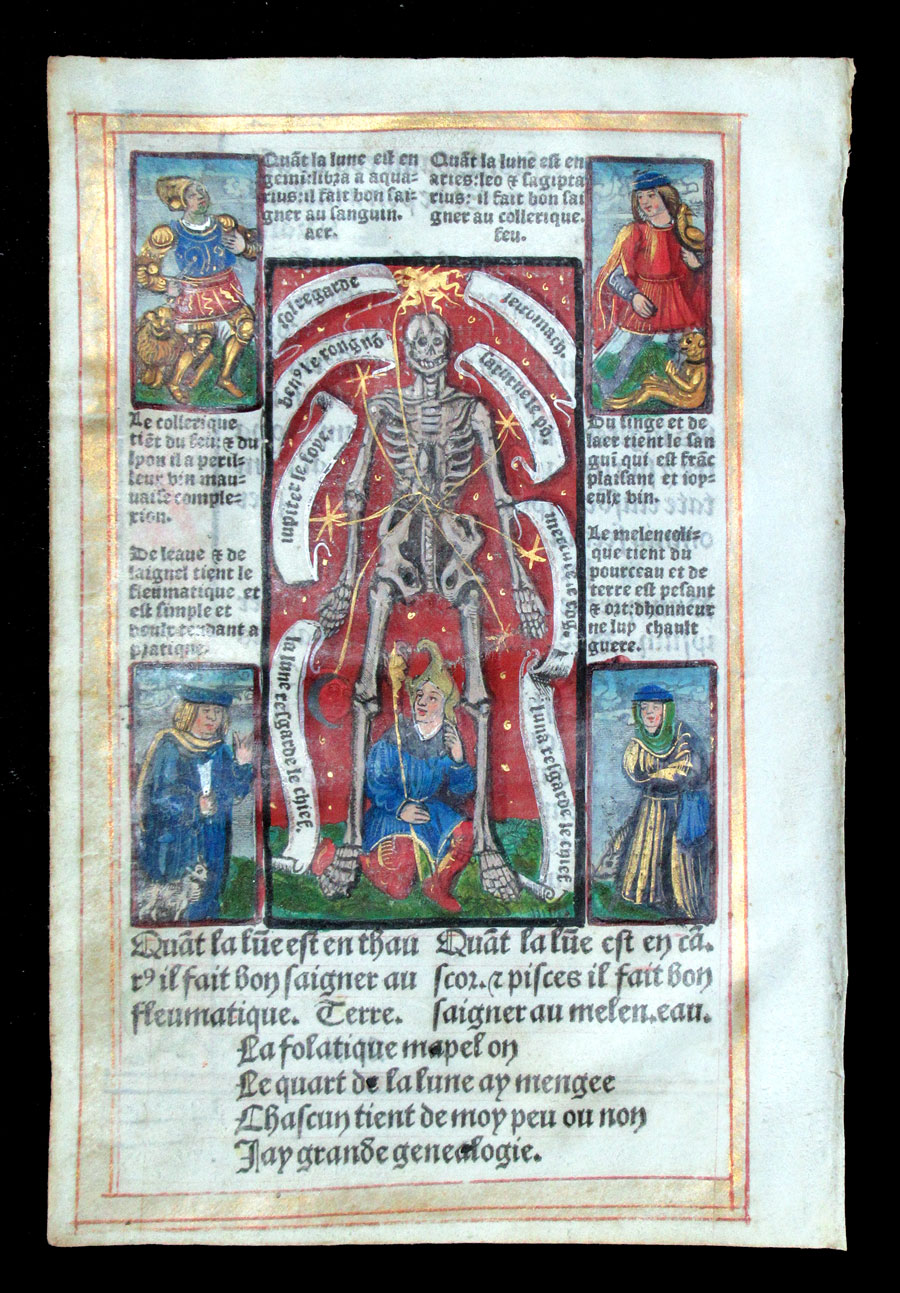 Quãt la lune est en
gemi:libra a aqua-
rius:il fait bon sai-
gner au sanguin.
aer.
Quãt la lune est en
aries:leo & sagipta
rius: il fait bon sai
gner au collerique.
feu.
sol regarde
lestomach.
ben⁹ le rongnõ
saturne le põ.
iupiter le foye.
mercure le
la lune resgarde le chief.
luna resgarde le chief
Le collerique
tiẽt du feu: & du
lyon il a peril-
leux vin mau-
uaise comple-
xion.
De leaue & de
laignel tient le
fleumatique et
est simple et
doulx tendant a
pratique.
Du singe et de
laer tient le san
guĩ qui est frãc
plaisant et ioy-
eulx vin.
Le melencoli-
que tient du
pourceau et de
terre est pesant
& ort: dhonneur
ne luy chault
guere.
Quãt la lũe est en thau
r⁹ il fait bon saigner au
fleumatique. Terre.
Quãt la lũe est en cã.
scor. & pisces il fait bon
saigner au melen.eau.
La folatique mapel on
Le quart de la lune ay mengee
Chascun tient de moy peu ou non
Jay grande genealogie.